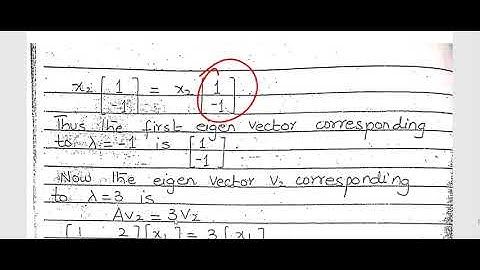 x₂ [1 -1] = x₂ [1 -1]
Thus the first eigen vector corresponding
to λ=-1 is [1 -1].
Now the eigen vector V₂ corresponding
to λ=3 is
AV₂ = 3V₂
[1 2][x₁] = 3[x₁]